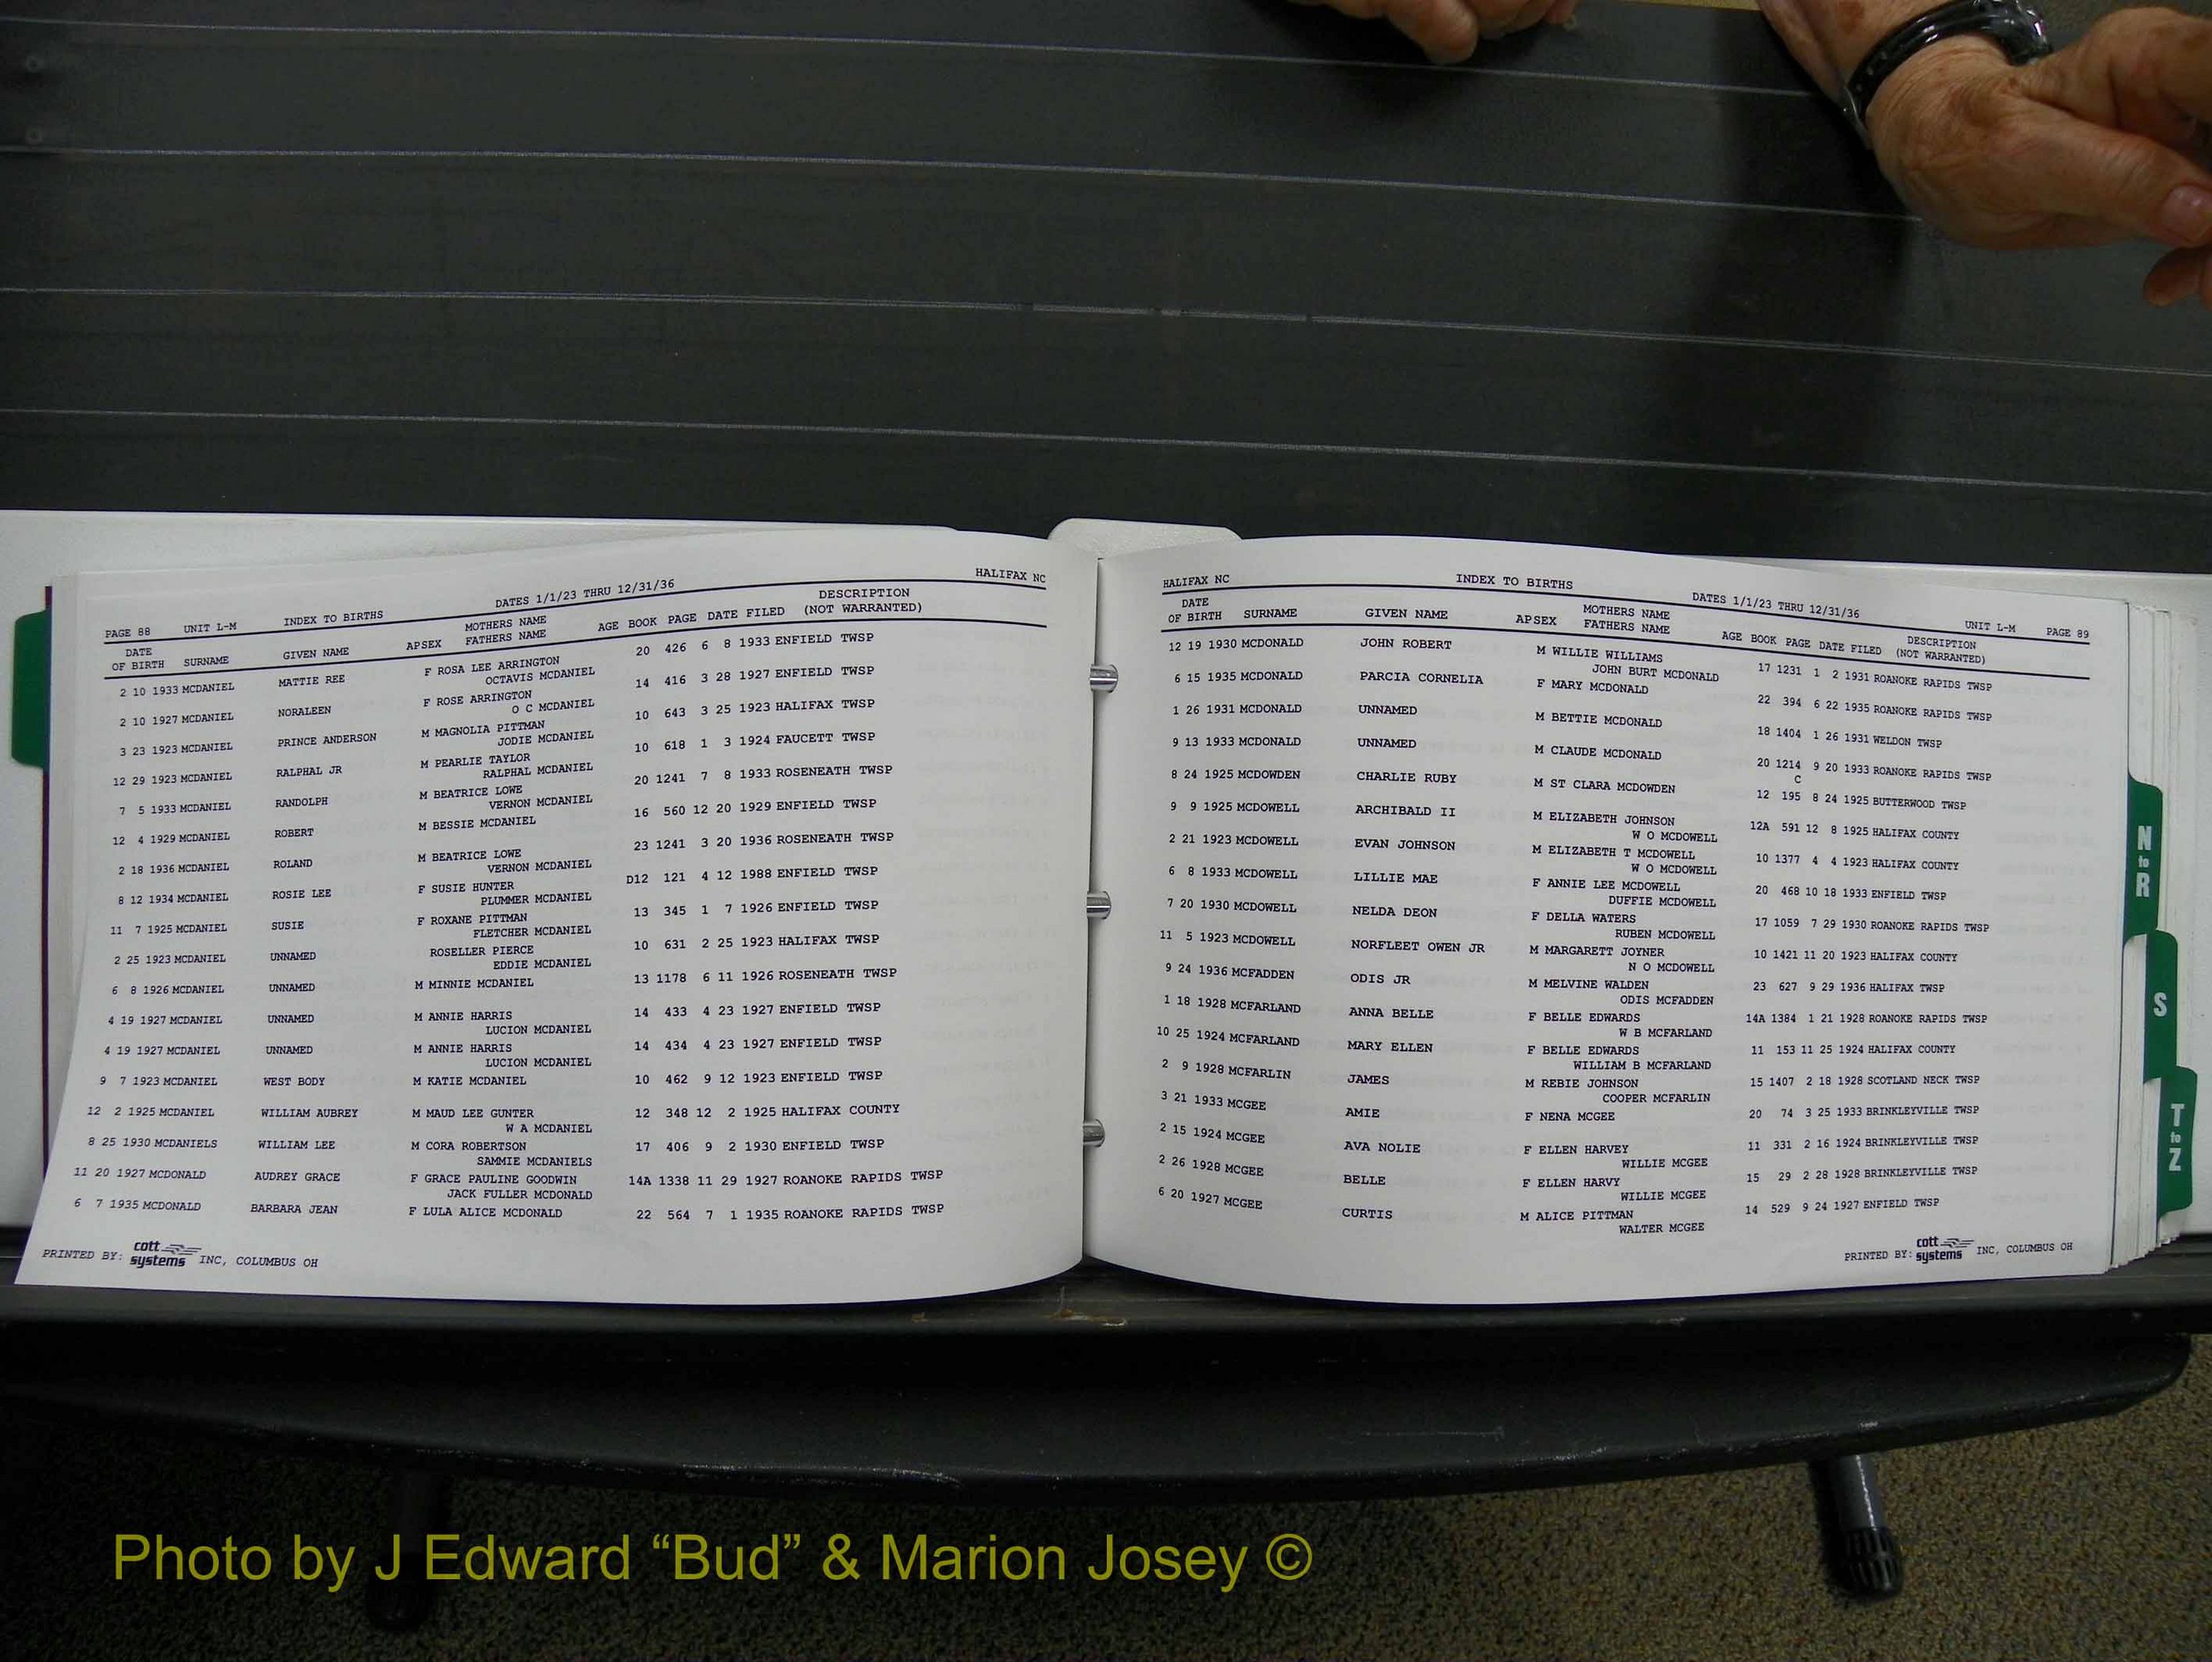 PAGE 88 UNIT L-M INDEX TO BIRTHS DATES 1/1/23 THRU 12/31/36 HALIFAX NC
DATE OF BIRTH SURNAME GIVEN NAME APSEX MOTHERS NAME FATHERS NAME AGE BOOK PAGE DATE FILED DESCRIPTION (NOT WARRANTED)
2 10 1933 MCDANIEL MATTIE REE F ROSA LEE ARRINGTON 20 426 6 8 1933 ENFIELD TWSP
OCTAVIS MCDANIEL
2 10 1927 MCDANIEL NORALEEN F ROSE ARRINGTON 14 416 3 28 1927 ENFIELD TWSP
O C MCDANIEL
3 23 1923 MCDANIEL PRINCE ANDERSON M MAGNOLIA PITTMAN 10 643 3 25 1923 HALIFAX TWSP
JODIE MCDANIEL
12 29 1923 MCDANIEL RALPHAL JR M PEARLIE TAYLOR 10 618 1 3 1924 FAUCETT TWSP
RALPHAL MCDANIEL
7 5 1933 MCDANIEL RANDOLPH M BEATRICE LOWE 20 1241 7 8 1933 ROSENEATH TWSP
VERNON MCDANIEL
12 4 1929 MCDANIEL ROBERT M BESSIE MCDANIEL 16 560 12 20 1929 ENFIELD TWSP
2 18 1936 MCDANIEL ROLAND M BEATRICE LOWE 23 1241 3 20 1936 ROSENEATH TWSP
VERNON MCDANIEL
8 12 1934 MCDANIEL ROSIE LEE F SUSIE HUNTER D12 121 4 12 1988 ENFIELD TWSP
PLUMMER MCDANIEL
11 7 1925 MCDANIEL SUSIE F ROXANE PITTMAN 13 345 1 7 1926 ENFIELD TWSP
FLETCHER MCDANIEL
2 25 1923 MCDANIEL UNNAMED ROSELLER PIERCE 10 631 2 25 1923 HALIFAX TWSP
EDDIE MCDANIEL
6 8 1926 MCDANIEL UNNAMED M MINNIE MCDANIEL 13 1178 6 11 1926 ROSENEATH TWSP
4 19 1927 MCDANIEL UNNAMED M ANNIE HARRIS 14 433 4 23 1927 ENFIELD TWSP
LUCION MCDANIEL
4 19 1927 MCDANIEL UNNAMED M ANNIE HARRIS 14 434 4 23 1927 ENFIELD TWSP
LUCION MCDANIEL
9 7 1923 MCDANIEL WEST BODY M KATIE MCDANIEL 10 462 9 12 1923 ENFIELD TWSP
12 2 1925 MCDANIEL WILLIAM AUBREY M MAUD LEE GUNTER 12 348 12 2 1925 HALIFAX COUNTY
W A MCDANIEL
8 25 1930 MCDANIELS WILLIAM LEE M CORA ROBERTSON 17 406 9 2 1930 ENFIELD TWSP
SAMMIE MCDANIELS
11 20 1927 MCDONALD AUDREY GRACE F GRACE PAULINE GOODWIN 14A 1338 11 29 1927 ROANOKE RAPIDS TWSP
JACK FULLER MCDONALD
6 7 1935 MCDONALD BARBARA JEAN F LULA ALICE MCDONALD 22 564 7 1 1935 ROANOKE RAPIDS TWSP
PRINTED BY: cott systems INC, COLUMBUS OH
HALIFAX NC INDEX TO BIRTHS DATES 1/1/23 THRU 12/31/36 UNIT L-M PAGE 89
DATE OF BIRTH SURNAME GIVEN NAME APSEX MOTHERS NAME FATHERS NAME AGE BOOK PAGE DATE FILED DESCRIPTION (NOT WARRANTED)
12 19 1930 MCDONALD JOHN ROBERT M WILLIE WILLIAMS 17 1231 1 2 1931 ROANOKE RAPIDS TWSP
JOHN BURT MCDONALD
6 15 1935 MCDONALD PARCIA CORNELIA F MARY MCDONALD 22 394 6 22 1935 ROANOKE RAPIDS TWSP
1 26 1931 MCDONALD UNNAMED M BETTIE MCDONALD 18 1404 1 26 1931 WELDON TWSP
9 13 1933 MCDONALD UNNAMED M CLAUDE MCDONALD 20 1214 9 20 1933 ROANOKE RAPIDS TWSP
C
8 24 1925 MCDOWDEN CHARLIE RUBY M ST CLARA MCDOWDEN 12 195 8 24 1925 BUTTERWOOD TWSP
9 9 1925 MCDOWELL ARCHIBALD II M ELIZABETH JOHNSON 12A 591 12 8 1925 HALIFAX COUNTY
W O MCDOWELL
2 21 1923 MCDOWELL EVAN JOHNSON M ELIZABETH T MCDOWELL 10 1377 4 4 1923 HALIFAX COUNTY
W O MCDOWELL
6 8 1933 MCDOWELL LILLIE MAE F ANNIE LEE MCDOWELL 20 468 10 18 1933 ENFIELD TWSP
DUFFIE MCDOWELL
7 20 1930 MCDOWELL NELDA DEON F DELLA WATERS 17 1059 7 29 1930 ROANOKE RAPIDS TWSP
RUBEN MCDOWELL
11 5 1923 MCDOWELL NORFLEET OWEN JR M MARGARETT JOYNER 10 1421 11 20 1923 HALIFAX COUNTY
N O MCDOWELL
9 24 1936 MCFADDEN ODIS JR M MELVINE WALDEN 23 627 9 29 1936 HALIFAX TWSP
ODIS MCFADDEN
1 18 1928 MCFARLAND ANNA BELLE F BELLE EDWARDS 14A 1384 1 21 1928 ROANOKE RAPIDS TWSP
W B MCFARLAND
10 25 1924 MCFARLAND MARY ELLEN F BELLE EDWARDS 11 153 11 25 1924 HALIFAX COUNTY
WILLIAM B MCFARLAND
2 9 1928 MCFARLIN JAMES M REBIE JOHNSON 15 1407 2 18 1928 SCOTLAND NECK TWSP
COOPER MCFARLIN
3 21 1933 MCGEE AMIE F NENA MCGEE 20 74 3 25 1933 BRINKLEYVILLE TWSP
2 15 1924 MCGEE AVA NOLIE F ELLEN HARVEY 11 331 2 16 1924 BRINKLEYVILLE TWSP
WILLIE MCGEE
2 26 1928 MCGEE BELLE F ELLEN HARVY 15 29 2 28 1928 BRINKLEYVILLE TWSP
WILLIE MCGEE
6 20 1927 MCGEE CURTIS M ALICE PITTMAN 14 529 9 24 1927 ENFIELD TWSP
WALTER MCGEE
PRINTED BY: cott systems INC, COLUMBUS OH
N to R
S
T to Z
Photo by J Edward “Bud” & Marion Josey ©